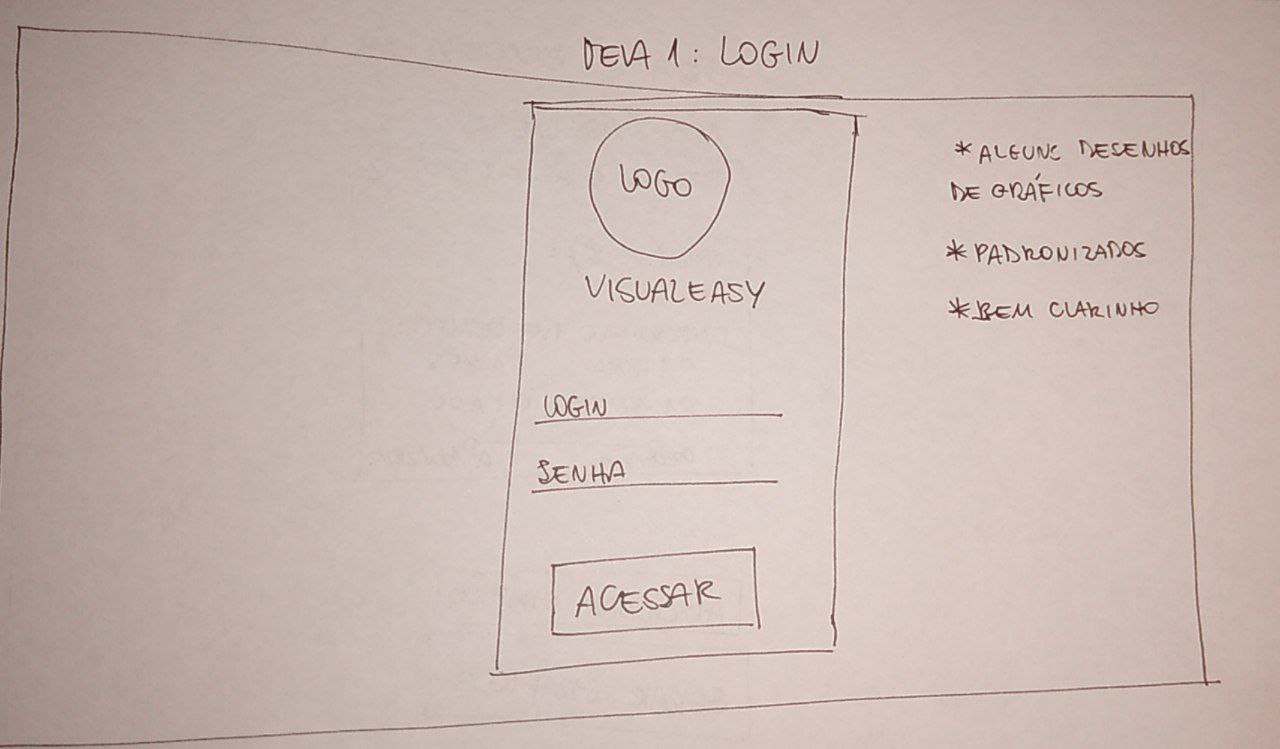 TELA 1: LOGIN
LOGO
VISUALEASY
LOGIN
SENHA
ACESSAR
* ALGUNS DESENHOS
DE GRÁFICOS
* PADRONIZADOS
* BEM CLARINHO